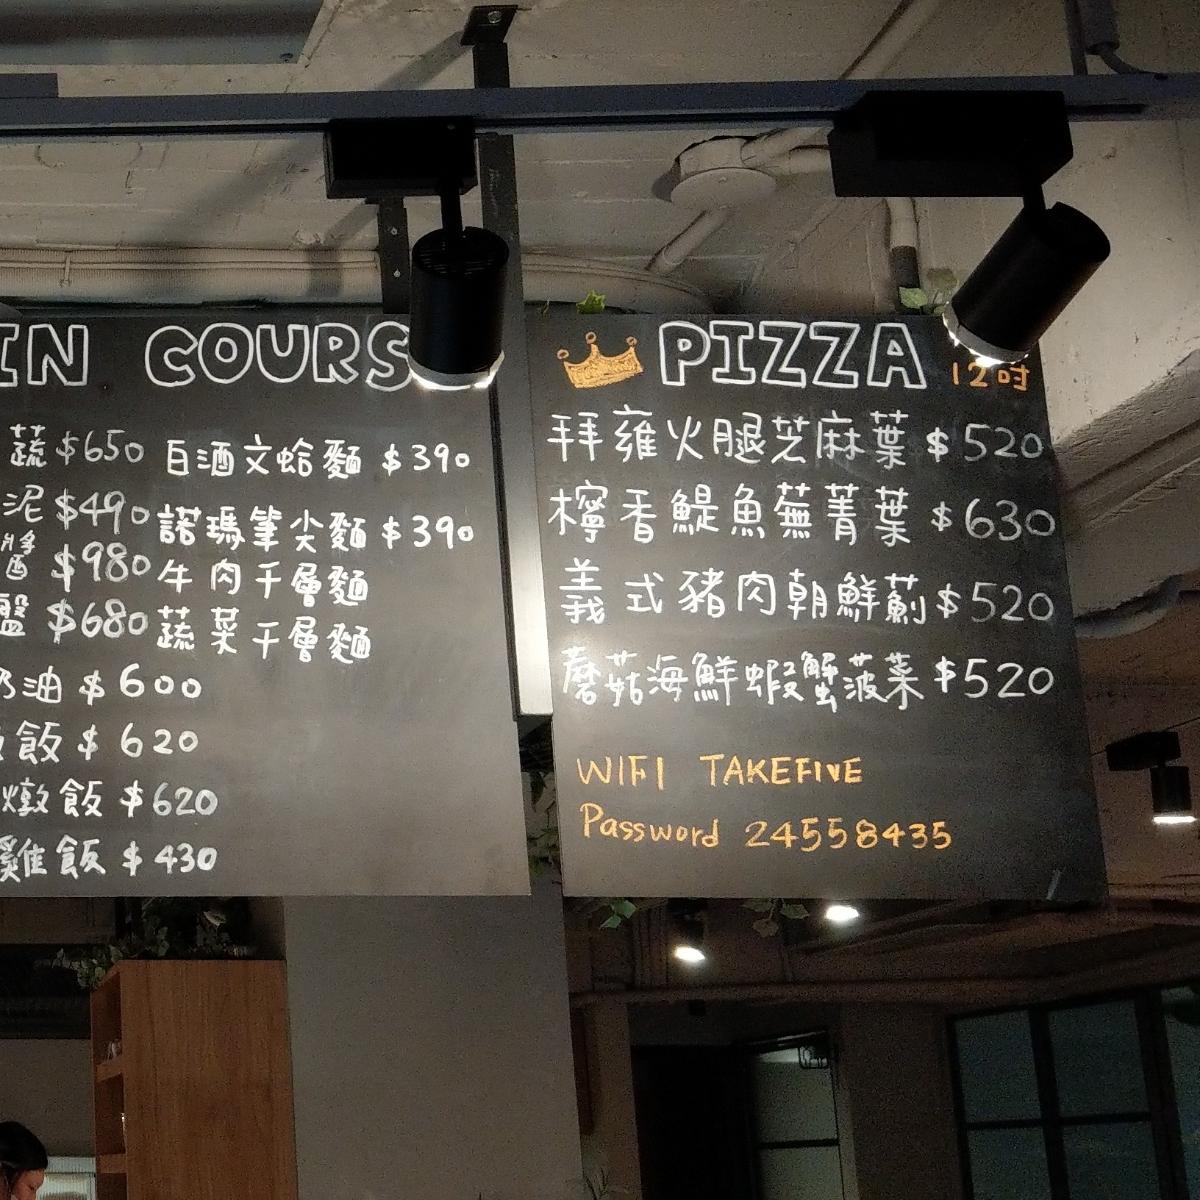 IN COURS
蔬 $650
泥 $490
$980
盤 $680
奶油 $600
飯 $620
燉飯 $620
雞飯 $430
白酒文蛤麵 $390
諾瑪筆尖麵 $390
牛肉千層麵
蔬菜千層麵
PIZZA 12吋
拜雍火腿芝麻葉 $520
檸香鯷魚蕪菁葉 $630
義式豬肉朝鮮薊 $520
蘑菇海鮮蝦蟹菠菜 $520
WIFI TAKEFIVE
Password 24558435